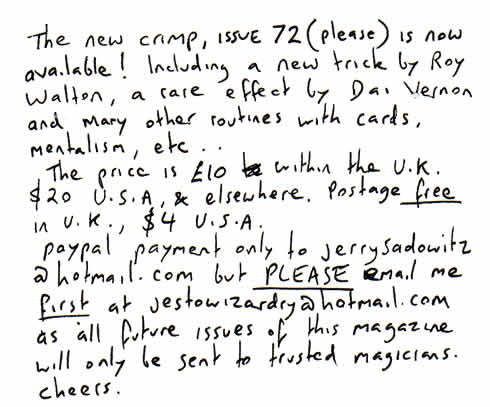 The new crimp, ISSUE 72 (please) is now
available! Including a new trick by Roy
Walton, a rare effect by Dai Vernon
and many other routines with cards,
mentalism, etc ..
The price is £10 within the U.K.
$20 U.S.A, & elsewhere. Postage free
in U.K., $4 U.S.A.
paypal payment only to jerrysadowitz
@hotmail.com but PLEASE email me
first at jestowizardry@hotmail.com
as all future issues of this magazine
will only be sent to trusted magicians.
cheers.